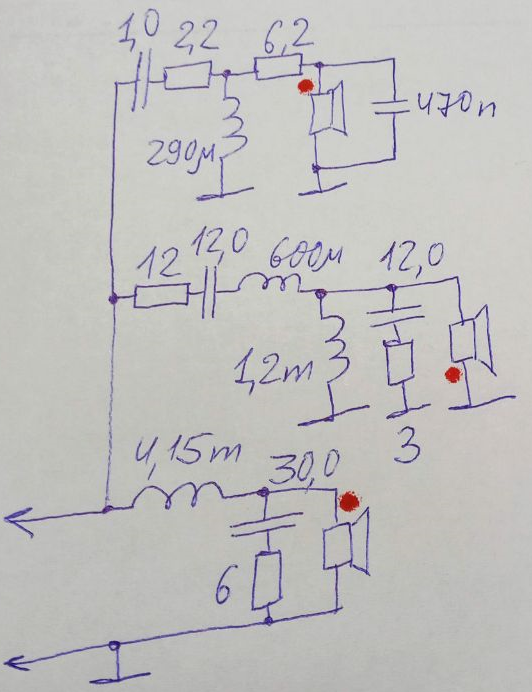 1,0 2,2 6,2
290μ 470n
12 12,0 600μ 12,0
1,2m
3
4,15m 30,0
6